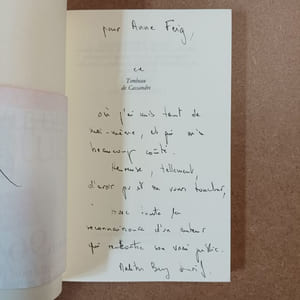 pour Anne Feig,
ce
Tombeau
de Cassandre
où j'ai mis tant de
moi-même, et qui m'a
beaucoup coûté.
Heureuse, tellement,
d'avoir pu et su vous toucher,
avec toute la
reconnaissance d'un auteur
qui rencontre son vrai public.